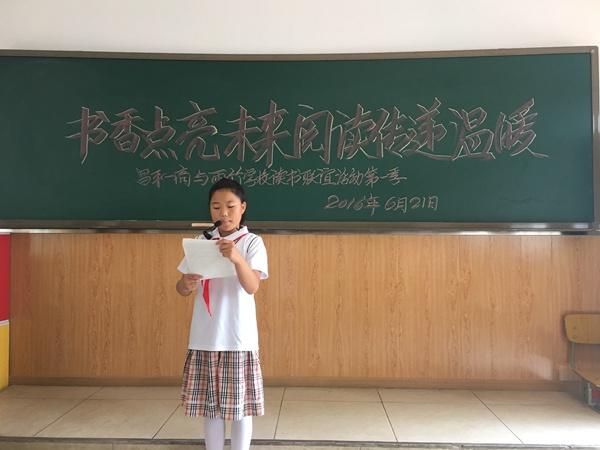 书香点亮未来阅读传递温暖
昌和一简与两竹学校读书联谊活动第一季
2016年6月21日